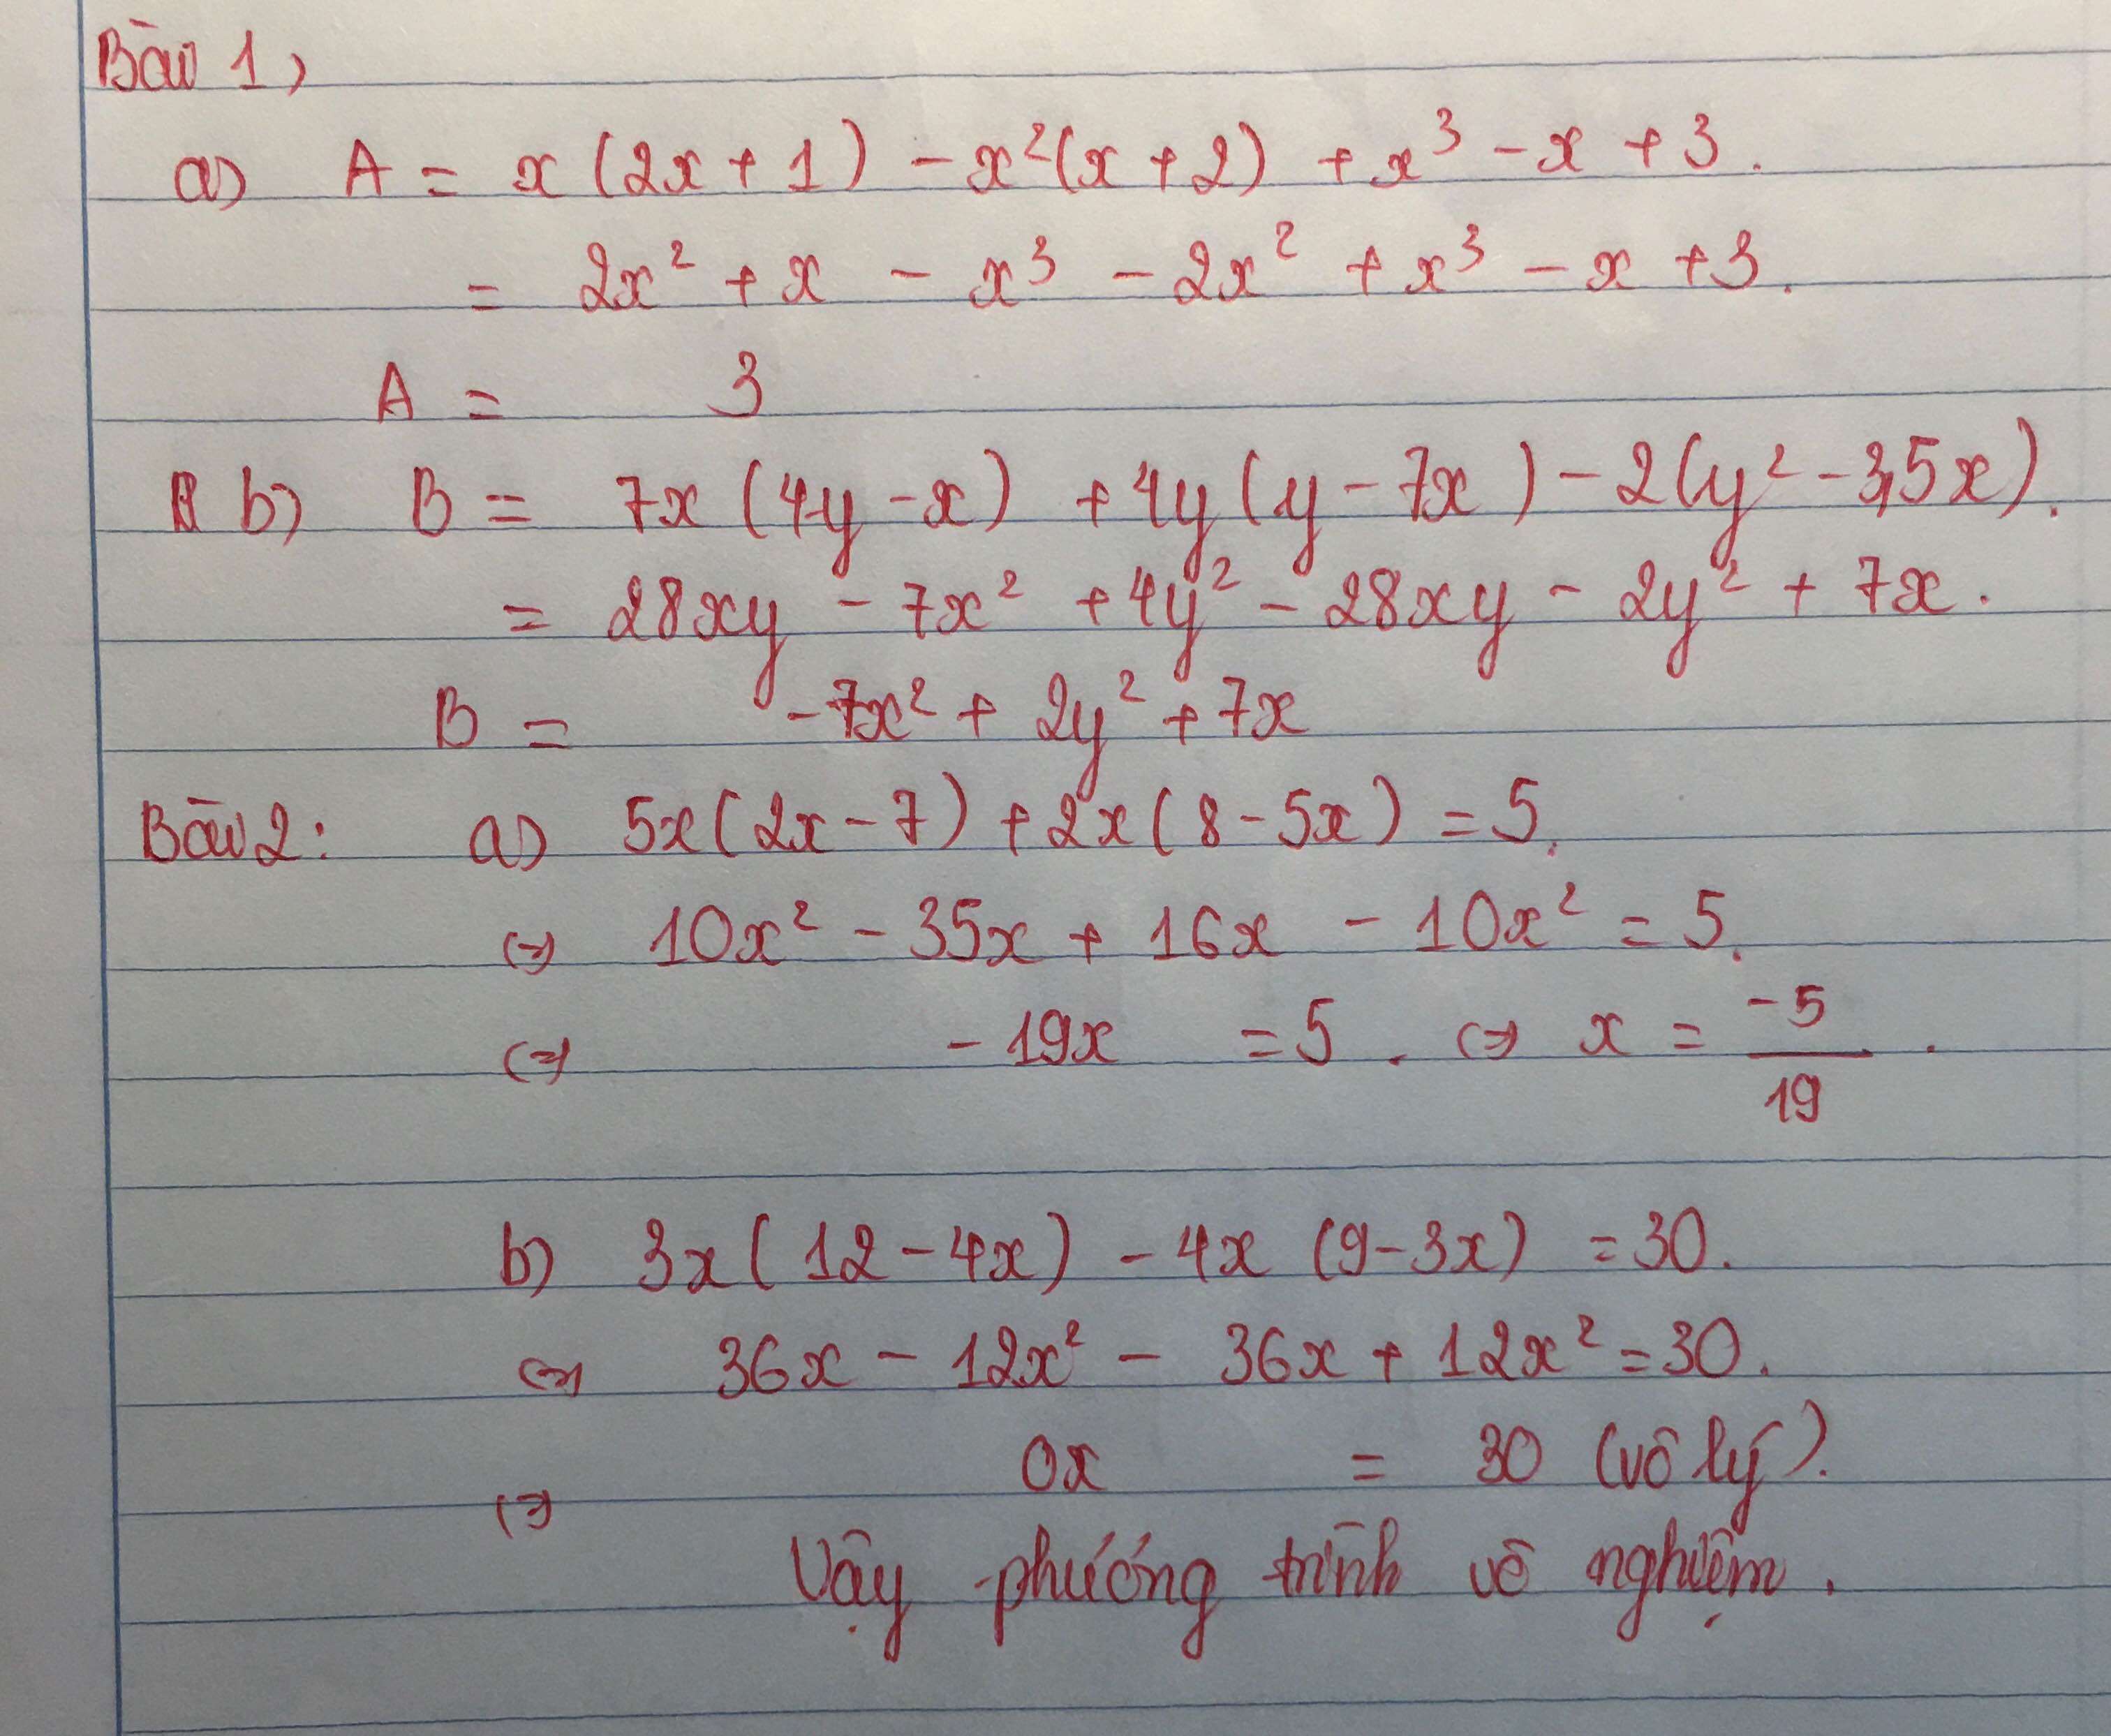 Bài 1,
a) A = x(2x + 1) - x²(x + 2) + x³ - x + 3.
= 2x² + x - x³ - 2x² + x³ - x + 3.
A = 3
b) B = 7x(4y - x) + 4y(y - 7x) - 2(y² - 3,5x).
= 28xy - 7x² + 4y² - 28xy - 2y² + 7x.
B = -7x² + 2y² + 7x
Bài 2: a) 5x(2x - 7) + 2x(8 - 5x) = 5.
⇔ 10x² - 35x + 16x - 10x² = 5.
⇔ -19x = 5. ⇔ x = -5/19.
b) 3x(12 - 4x) - 4x(9 - 3x) = 30.
⇔ 36x - 12x² - 36x + 12x² = 30.
⇔ 0x = 30 (vô lý).
Vậy phương trình vô nghiệm.